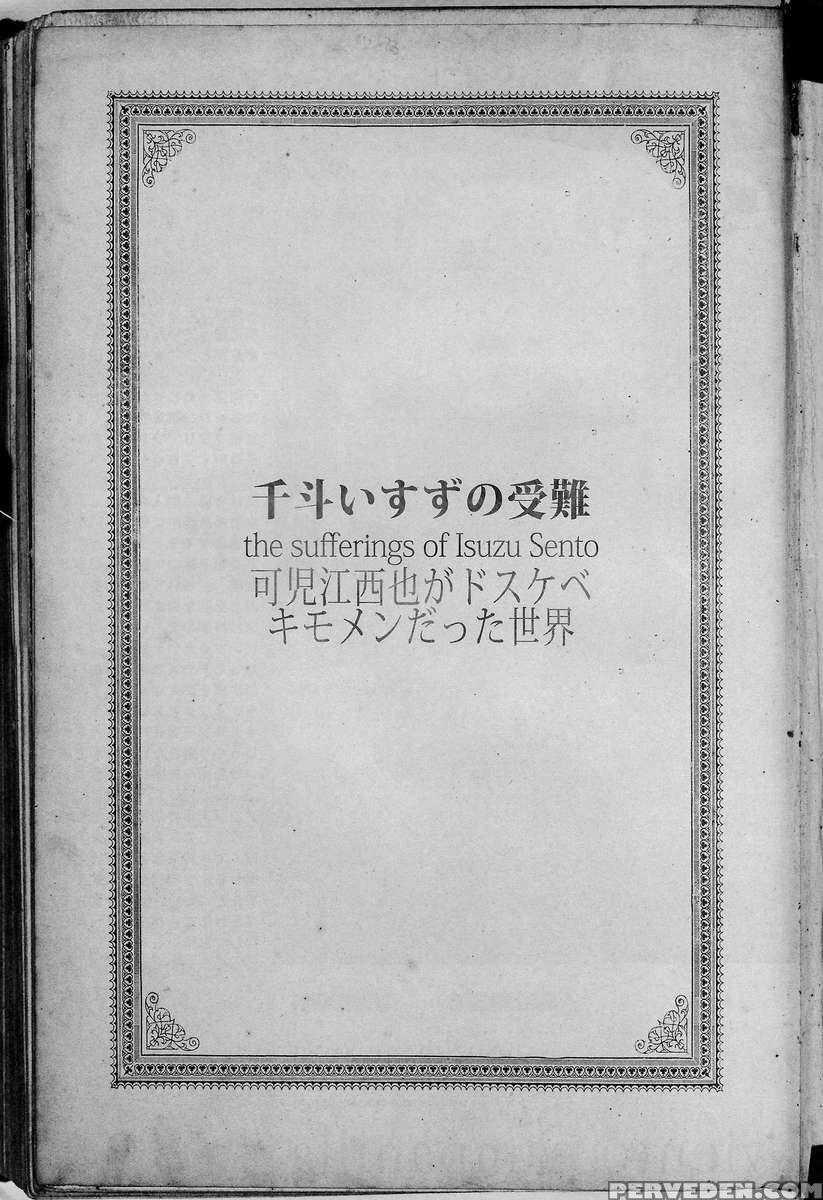 千斗いすずの受難
the sufferings of Isuzu Sento
可児江西也がドスケベ
キモメンだった世界
PERVEDEN.COM